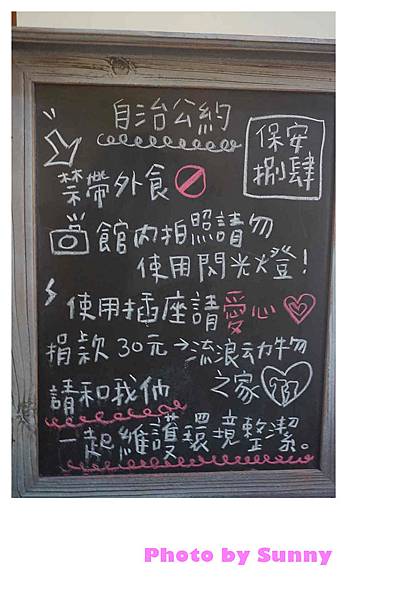 自治公約
保安
捌肆
禁帶外食
館內拍照請勿
使用閃光燈!
使用插座請愛心
捐款30元→流浪动物
之家
請和我們
一起維護環境整潔。
Photo by Sunny